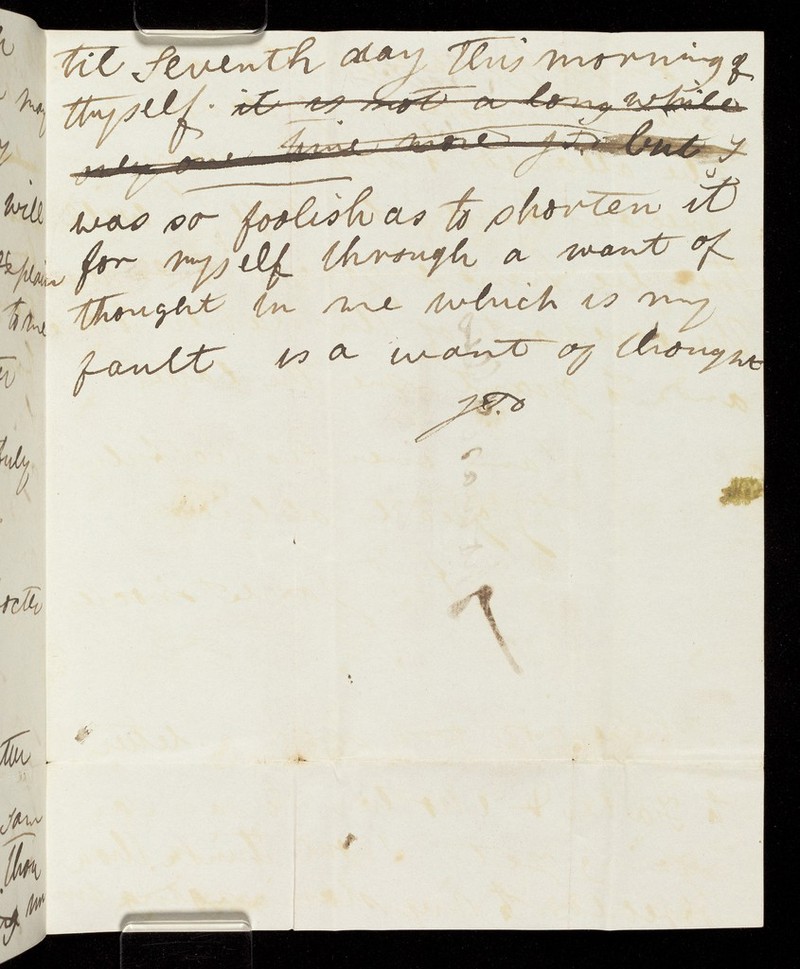 til Seventh day This morning of
thyself. it is not a long while
only one time more but I
was so foolish as to shorten it
for myself through a want of
thought in me which is my
fault is a want of thought
may
will
explain
to me
July
octer
I am
thou